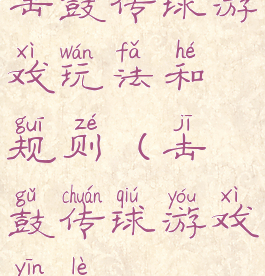 击鼓传球游
xì wán fǎ hé
戏玩法和
guī zé jī
规则（击
gǔ chuán qiú yóu xì
鼓传球游戏
yīn lè